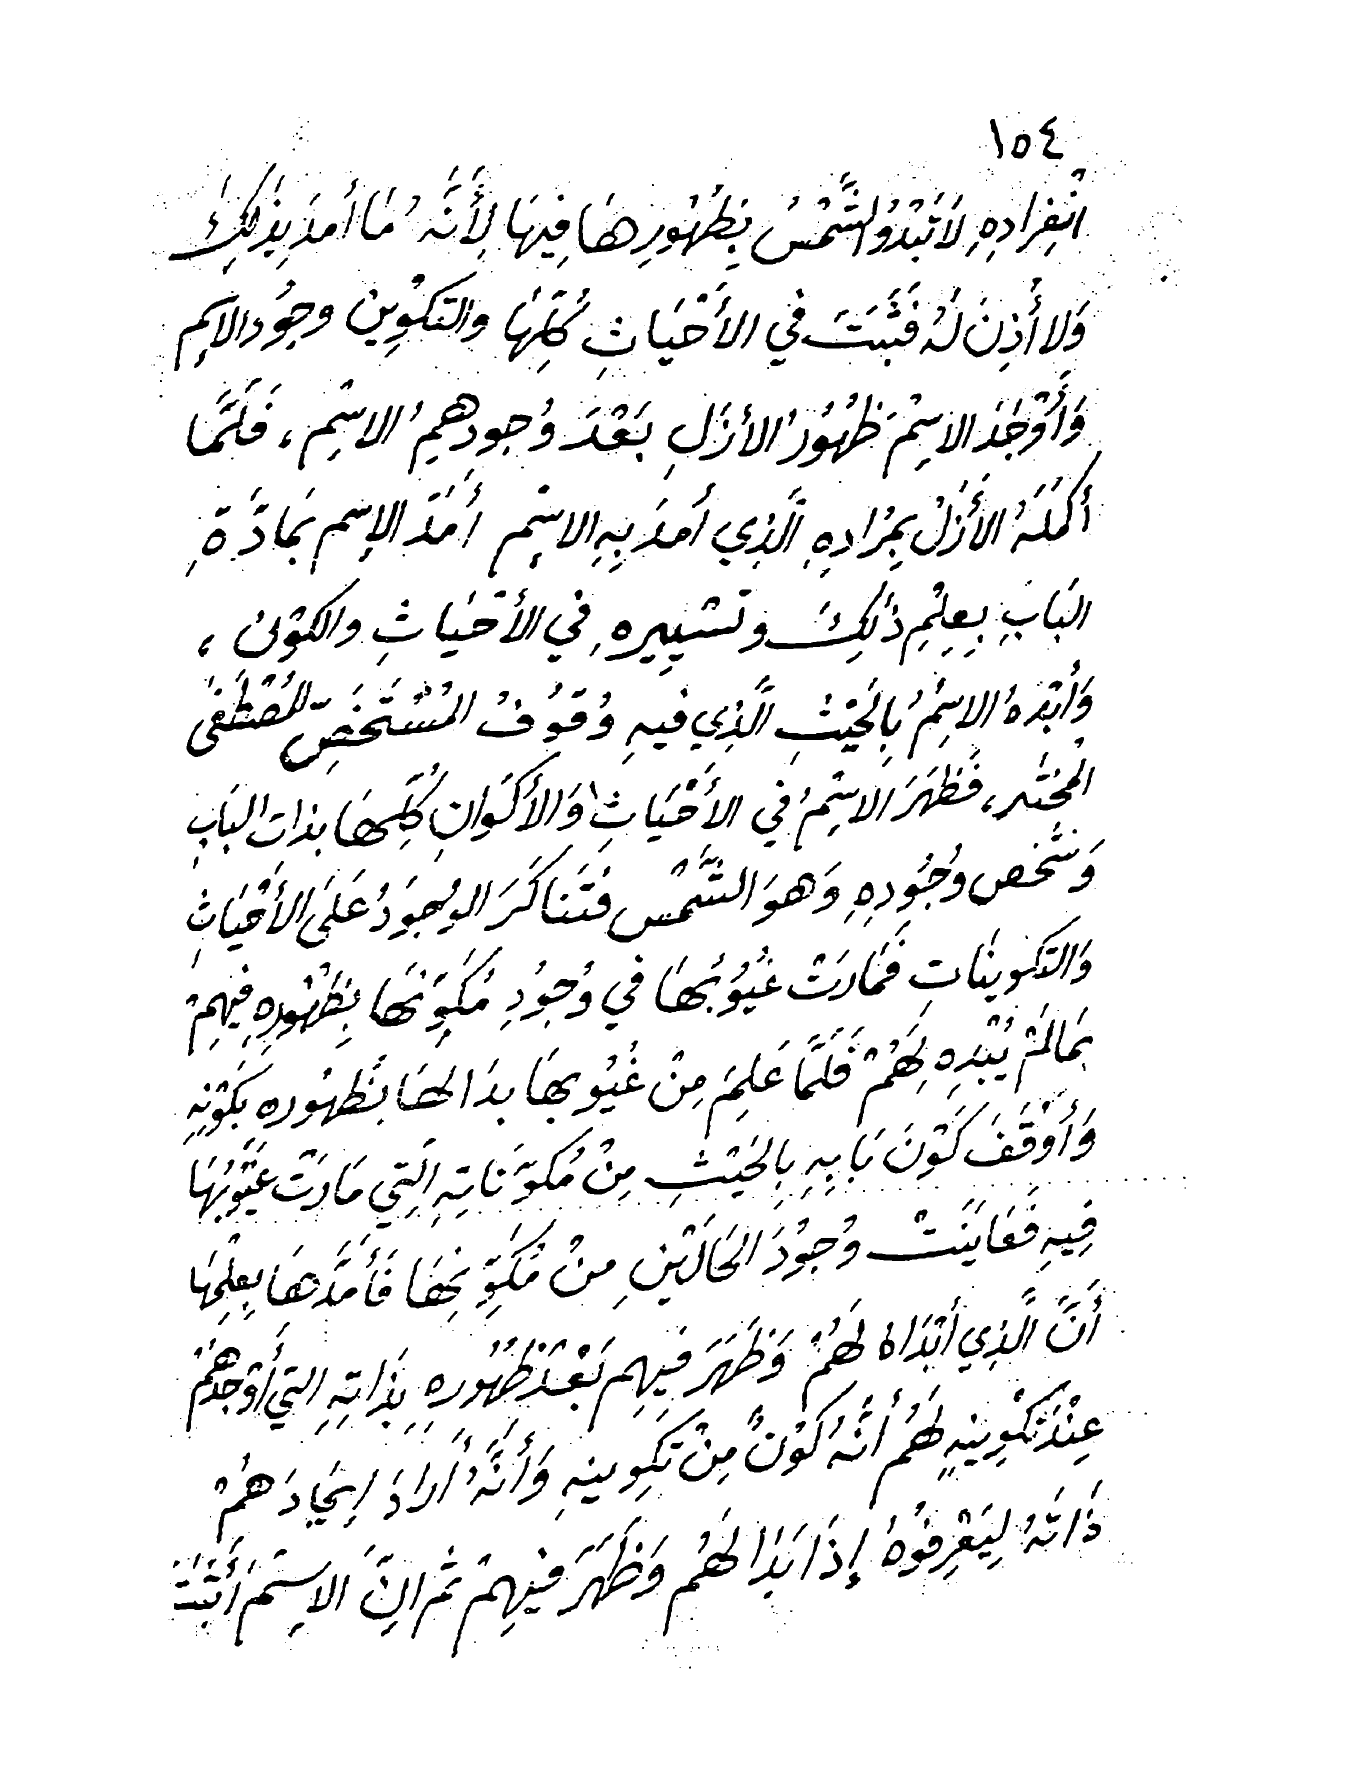 ١٥٤
انْفِرادِهِ لَا تَبْدُو الشَّمْسُ بِظُهُورِهَا فِيهَا لِأَنَّهُ مَا أمدَ بِذٰلِكَ
وَلا أُذِنَ لَهُ فَثَبَتَ في الأَحْيَاثِ كُلِّهَا والتكْوِين وجُود الاسِم
وَأَوْجَدَ الاسِمْ ظُهُورُ الأزَلِ بَعْدَ وُجودِهِمِ الاسْمِ ، فَلَمَّا
أكمَلَهُ الأَزَلْ بِمُرَادِهِ الَّذِي أَمدَ بِهِ الاسْم أَمَدَّ الإسم بمَادَّةِ
البَابِ بِعِلْمِ ذٰلِكَ وتَسْيِيرِهِ في الأحْيَاثِ والكوْن ،
وَأَبْدَهُ الاسِمُ بِالحَيْثِ الَّذِي فيهِ وُقوُفُ المُسْتَخَصِّ المُصْطَفٰى
المُخْتٰر ، فَظَهَرَ الاسْمُ في الأَحْيَاثِ وَالأكوَانِ كُلِّهَا بذات البَابِ
وَشَخص وجُودِهِ وَهوَ الشَّمْس فتَنَاكَرَ الوجوَدُ عَلَى الأَحْيَاثِ
وَالتكوينَاتِ فَمَادَتْ غُيُوبُهَا في وُجوُدِ مُكَوِّنهَا بِظهُورِهِ فيهِمْ
بمَا لَمْ يُبْدِهِ لَهُمْ فَلَمَّا عَلِمَ مِنْ غُيُوبهَا بدَا لهَا بُظهُوره بكَوْنِهِ
وَأَوْقَفَ كَوْنَ بَابِهِ بِالحَيْثِ مِنْ مُكوّنَاتِهِ الَتِي مَادَتْ غيُوبُهَا
فِيهِ فَعَايَنَتْ وُجوُدَ الحَالَتيْنِ مِنْ مُكَوِّنِهَا فَأَمَدَّهَا بِعِلْمِهَا
أَنَّ الَّذِي أبْدَاهُ لَهُمْ وَظَهَرَ فيهِم بَعْدَ ظُهُورِهِ بِذَاتِهِ التي أَوْجَدَهُمْ
عِنْدَ تكْوِينِهِ لهُم أنَّهُ كَوْنٌ مِنْ تكوِينِهِ وَأَنَّهُ أَرَادَ إيجَادَهُمْ
ذَاتَهُ لِيَعْرِفوُهُ إِذَا بَدَا لهُم وَظَهَرَ فيهِمْ ثم انَّ الاسِمْ أَثبَتَ